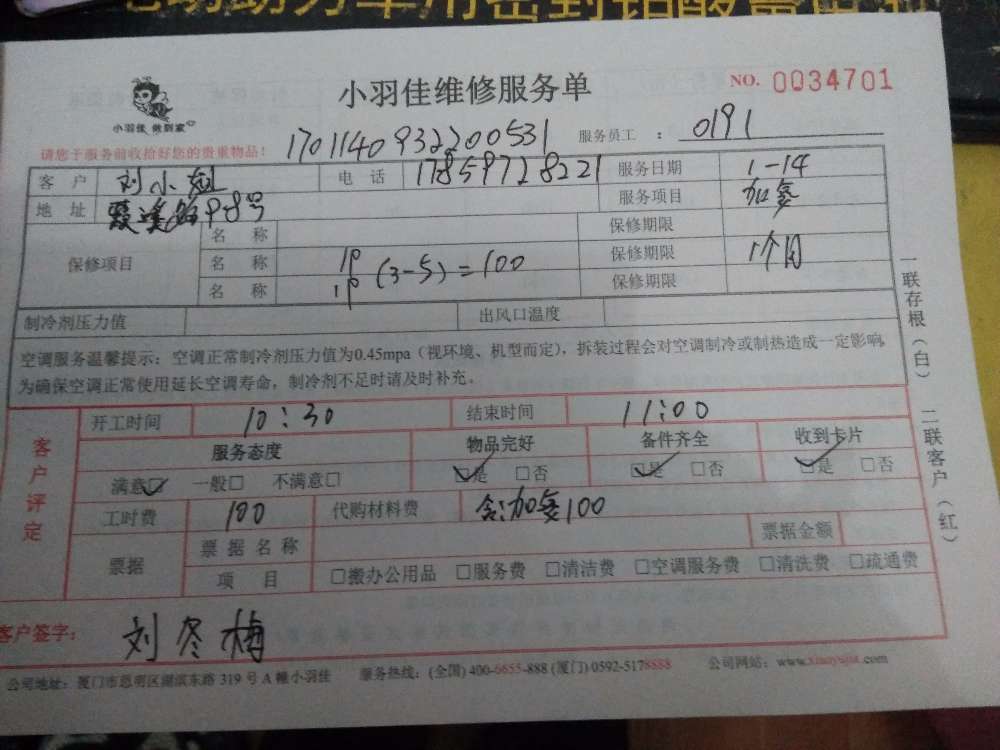 小羽佳维修服务单
NO. 0034701
小羽佳 做到家
1701140932200531
服务员工 : 0191
请您于服务前收拾好您的贵重物品!
客 户 刘小姐 电 话 17859728221 服务日期 1-14
地 址 98号 服务项目 加氟
保修项目
名 称 保修期限
名 称 1P (3-5)=100 保修期限 1个月
名 称 1P 保修期限
制冷剂压力值 出风口温度
空调服务温馨提示：空调正常制冷剂压力值为0.45mpa（视环境、机型而定），拆装过程会对空调制冷或制热造成一定影响，
为确保空调正常使用延长空调寿命，制冷剂不足时请及时补充。
客户评定
开工时间 10:30 结束时间 11:00
服务态度 物品完好 备件齐全 收到卡片
满意☑ 一般□ 不满意□ ☑是 □否 ☑是 □否 ☑是 □否
工时费 100 代购材料费 含:加氟100
票据 票据名称 票据金额
项 目 □搬办公用品 □服务费 □清洁费 □空调服务费 □清洗费 □疏通费
客户签字: 刘冬梅
公司地址: 厦门市思明区湖滨东路 319 号 A 幢小羽佳 服务热线: (全国) 400-6655-888 (厦门) 0592-5178888 公司网站: www.xiaoyujia.com
一联存根（白） 二联客户（红）